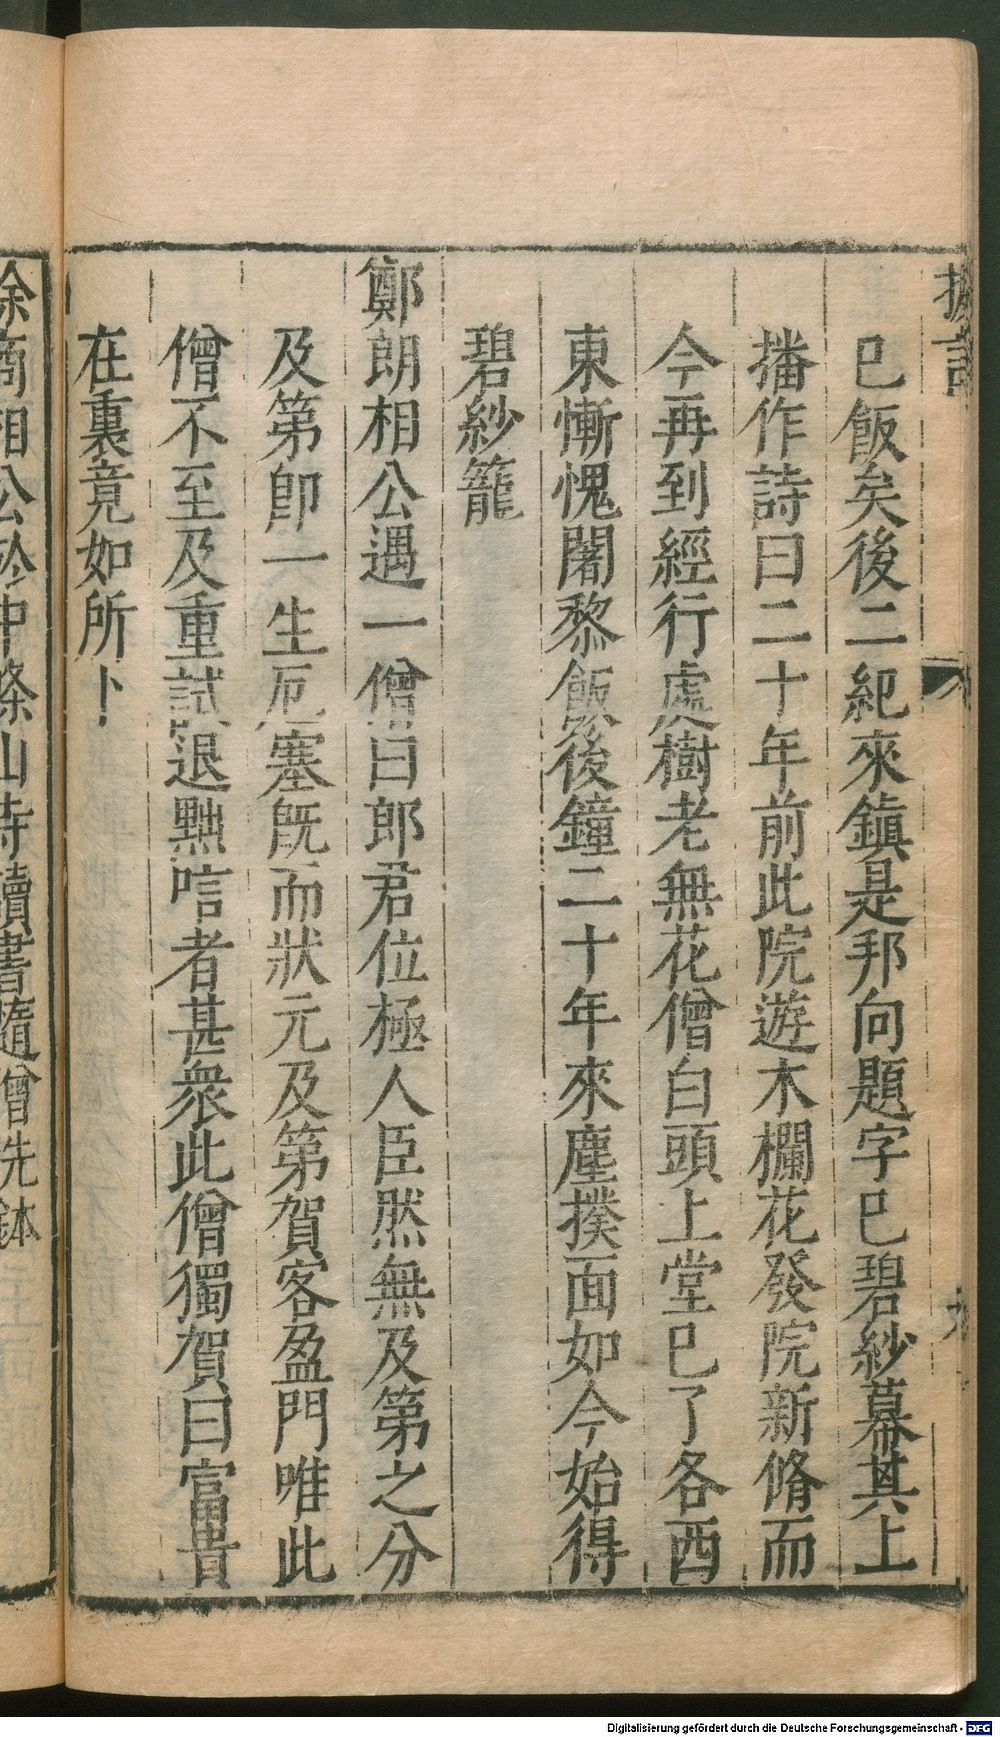 摭言
已飯矣後二紀來鎮是邦向題字已碧紗幕其上
播作詩曰二十年前此院遊木欄花發院新脩而
今再到經行處樹老無花僧白頭上堂已了各西
東慚愧闍黎飯後鐘二十年來塵撲面如今始得
碧紗籠
鄭朗相公遇一僧曰郎君位極人臣然無及第之分
及第即一生厄塞既而狀元及第賀客盈門唯此
僧不至及重試退黜唁者甚衆此僧獨賀曰富貴
在裏竟如所卜
徐商相公於中條山寺讀書隨僧洗鉢
Digitalisierung gefördert durch die Deutsche Forschungsgemeinschaft - DFG